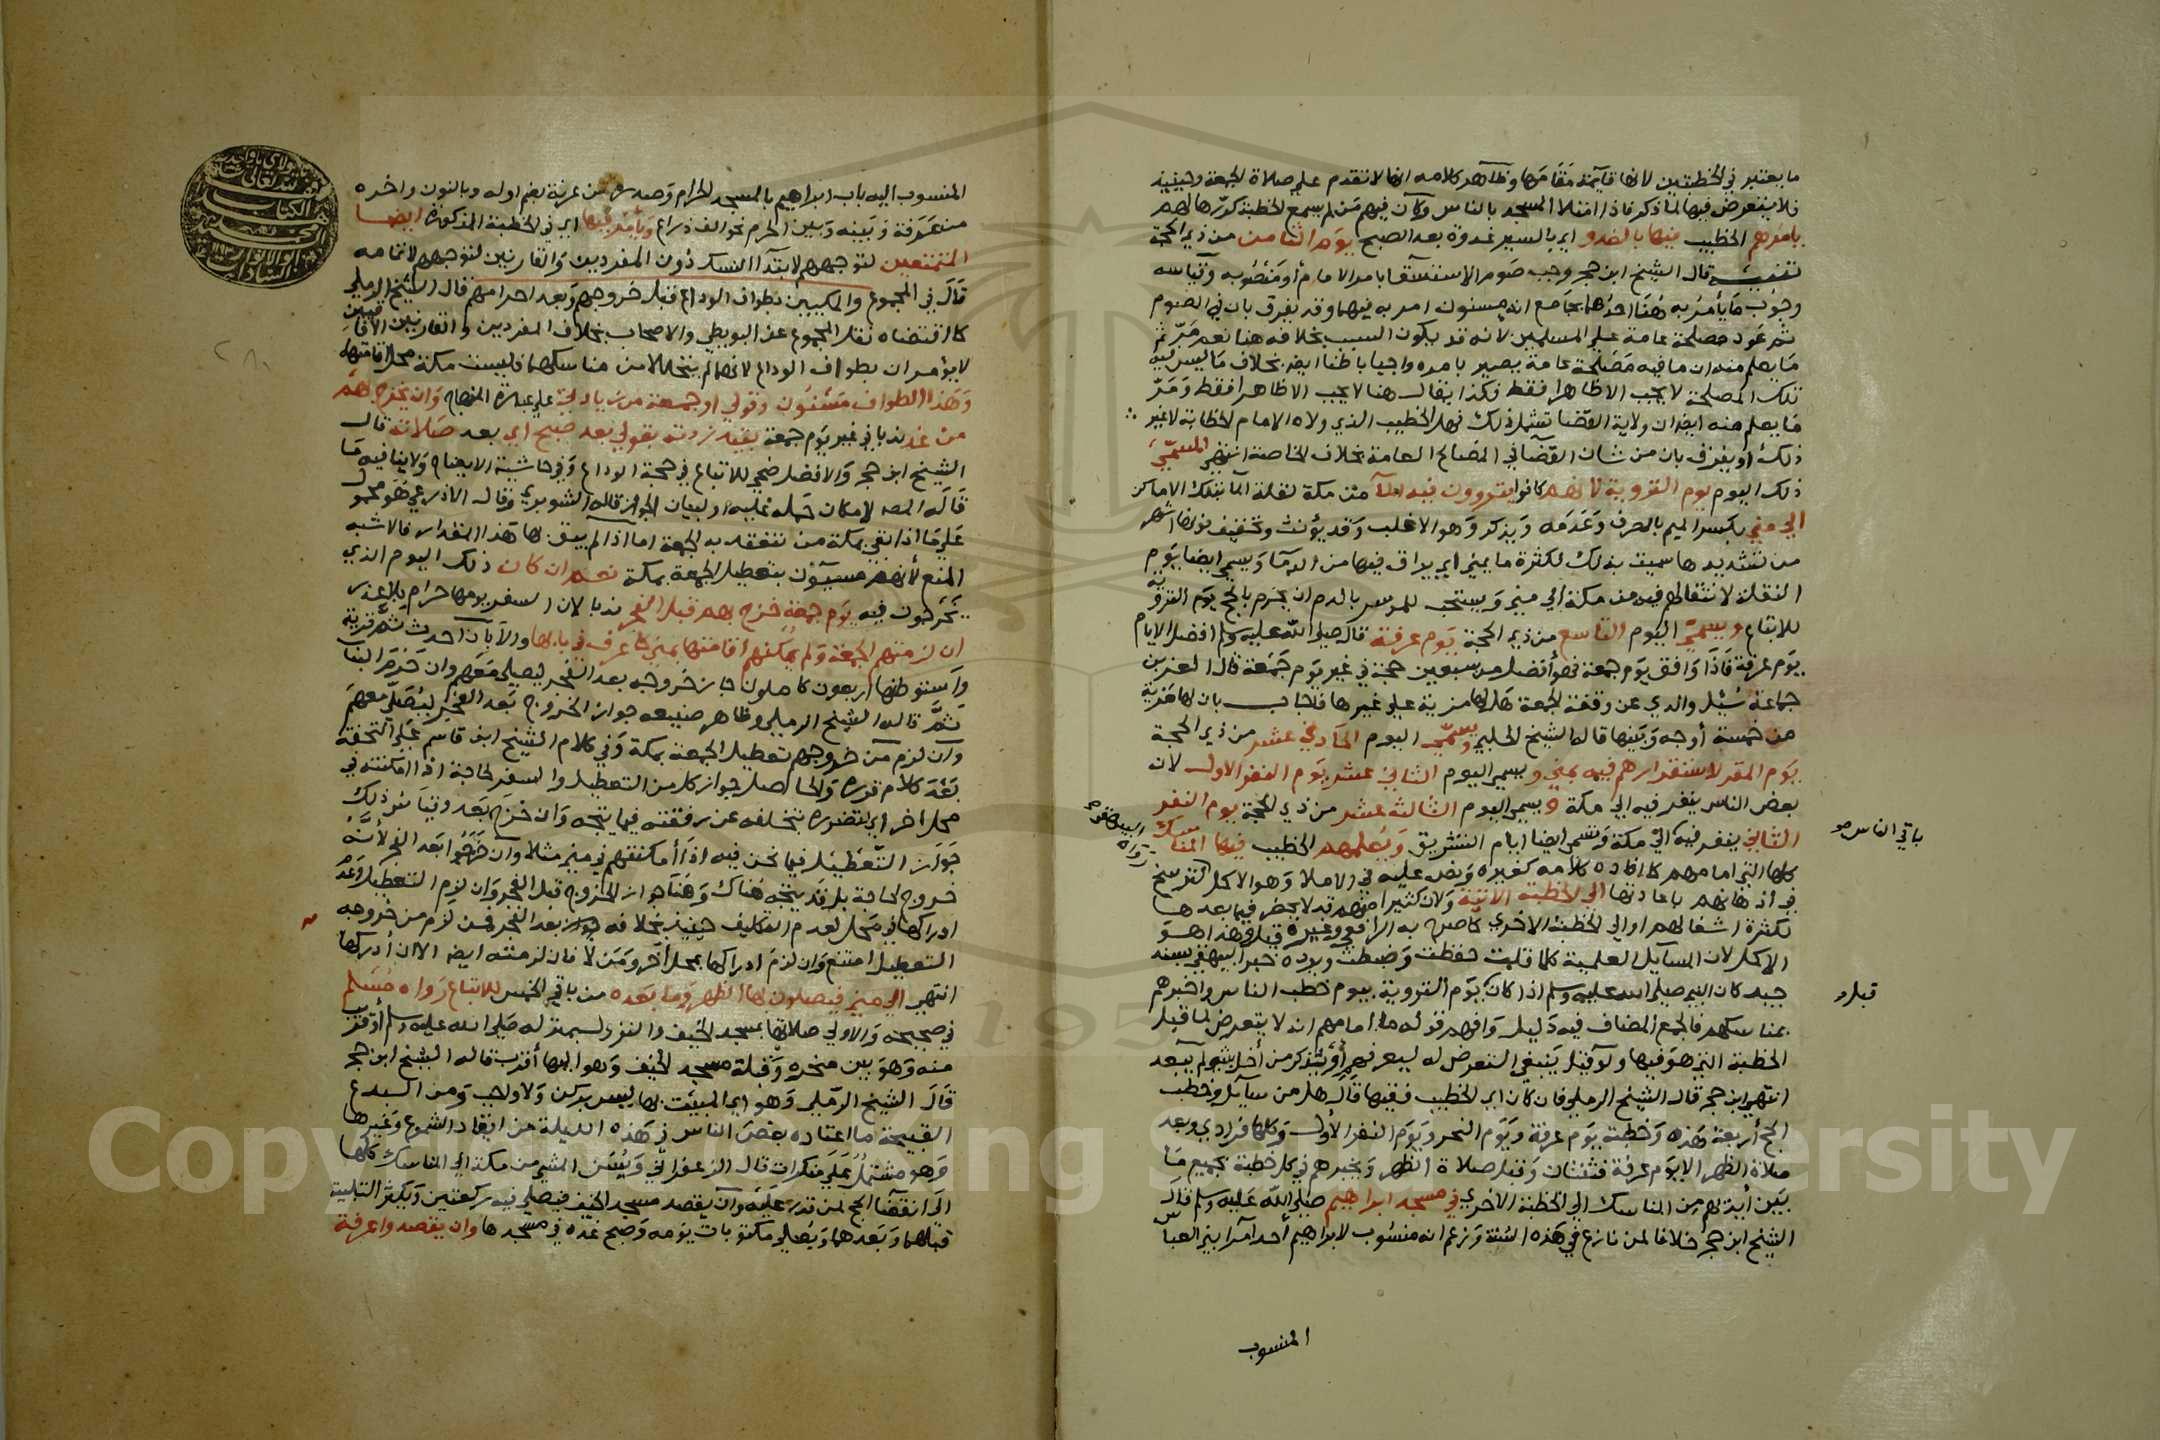 ما يعتبر في الخطبتين لانها قايمة مقامها وظاهر كلامه انها لا تقدم على صلاة الجمعة وحينيذ
فلا يتعرض فيها لما ذكر فاذا امتلا المسجد بالناس وكان فيهم من لم يسمع الخطبة كررها لهم
يامرهم الخطيب فيها بالغدو اي بالسير غدوة بعد الصبح يوم الثامن من ذي الحجة
تنبيه قال الشيخ ابن حجر وجب صوم الاستسقا بامر الامام أو منصوبه وقياسه
وجوب ما يأمر به هنا احدهما بجامع انه مسنون امر به فيهما وقد يفرق بان في الصوم
ثم عود مصلحة عامة على المسلمين لانه قد يكون السبب بخلافه هنا نعم مر ثم
ما يعلم منه ان ما فيه مصلحة عامة يصير بامره واجبا باطنا ايض بخلاف ما ليس فيه
تلك المصلحة لا يجب الا ظاهرا فقط فكذا يقال هنا لا يجب الا ظاهرا فقط ومر
ما يعلم منه ايض ان ولاية القضا تشمل ذلك فهل الخطيب الذي ولاه الامام الخطابة لا غير
ذلك أو يفرق بان من شان القضآ في المصالح العامة بخلاف الخاصة انتهى المسمى
ذلك اليوم يوم التروية لانهم كانوا يتروون فيه المآ من مكة لقلة المآ بتلك الاماكن
الى منى بكسر الميم بالصرف وعدمه ويذكر وهو الاغلب وقد يؤنث وتخفيف نونها اشهر
من تشديدها سميت بذلك لكثرة ما يمنى اي يراق فيها من الدمآ ويسمى ايضا يوم
النقلة لانتقالهم فيه من مكة الى منى ويستحب للموسر بالدم ان يحرم بالحج يوم التروية
للاتباع ويسمى اليوم التاسع من ذي الحجة يوم عرفة قال صلى الله عليه وسلم افضل الايام
يوم عرفة فاذا وافق يوم جمعة فهو أفضل من سبعين حجة في غير يوم جمعة قال العز بن
جماعة سُيل والدي عن وقفة الجمعة هل لها مزية على غيرها فاجاب بان لها مزية
من خمسة أوجه وبينها قاله الشيخ الحلبي ويسمى اليوم الحادي عشر من ذي الحجة
يوم القر لاستقرارهم فيه بمنى و يسمى اليوم الثاني عشر يوم النفر الاول لان
بعض الناس ينفر فيه الى مكة و يسمى اليوم الثالث عشر من ذي الحجة يوم النفر
الثاني ينفر فيه الى مكة وتسمى ايضا ايام التشريق ويُعلمهم الخطيب فيها المناسك
باقي الناس صو
كلها التي امامهم كما افاده كلامه كغيره ونص عليه في الاملا وهو الاكمل لترسخ
في اذهانهم باعادتها الى الخطبة الاتية ولان كثيرا منهم قد لا يحضر فيما بعدها
لكثرة اشغالهم او الى الخطبة الاخرى كما صرح به الرافعي وغيره قيل وهذا هو
الاكمل لان المسآيل العلمية كلما قلت حفظت وضبطت ويرده خبر البيهقي بسند
جيد كان النبي صلى الله عليه وسلم اذا كان يوم التروية بيوم خطب الناس واخبرهم
قبل و
بمناسكهم فالجمع المضاف فيه دليل وافهم قوله ما امامهم انه لا يتعرض لما قبل
الخطبة التي هو فيها ولو قيل ينبغي التعرض له ليعرفه أو يتذكر من أخل بشي لم يبعد
انتهى ابن حجر قال الشيخ الرملي فان كان اي الخطيب فقيها قال هل من سآيل وخطب
الحج أربعة هذه وخطبة يوم عرفة ويوم النحر ويوم النفر الأول وكلها فرادي وبعد
صلاة الظهر الا يوم عرفة فثنتان وقبل صلاة الظهر ويخبرهم في كل خطبة بجميع ما
بين أيديهم من المناسك الى الخطبة الاخرى في مسجد ابراهيم صلى الله عليه وسلم قال
الشيخ ابن حجر خلافا لمن نازع في هذه النسبة وزعم انه منسوب لابراهيم أحد أمرا بني العباس
المنسوب
المنسوب اليه باب ابراهيم بالمسجد الحرام وصدره من عرنة بضم اوله وبالنون واخره
من عرفة وبينه وبين الحرم نحو الف ذراع ويأمر فيها اي في الخطبة المذكورة ايضا
المتمتعين لتوجههم لابتدآ النسك دون المفردين والقارنين لتوجههم لاتمامه
قال في المجموع والمكيين بطواف الوداع قبل خروجهم وبعد احرامهم قال الشيخ الرملي
كما اقتضاه نقل المجموع عن البويطي والاصحاب بخلاف المفردين والقارنين الآفاقيين
لا يؤمران بطواف الوداع لانهما لم يتحللا من مناسكهما وليست مكة محل اقامتهما
وهذا الطواف مسنون وقولي او جمعة من زيادتي على عبارة المنهاج وان يخرج بهم
من غد ندبا في غير يوم جمعة بقيد زدته بقولي بعد صبح اي بعد صلاته قال
الشيخ ابن حجر والافضل ضحى للاتباع في حجة الوداع وفي حاشية الايضاح ولاينافيه ما
قاله المص لامكان حمله عليه او لبيان الجواز قاله الشوبري وقال الاذرعي هو محمول
على ما اذا بقي بمكة من تنعقد به الجمعة اما اذا لم يبق بها هذا المقدار فالاشبه
المنع لأنهم مسيؤن بتعطيل الجمعة بمكة نعم ان كان ذلك اليوم الذي
يخرجون فيه يوم جمعة خرج بهم قبل الفجر ندبا لان السفر يومها حرام بلا عذر
ان لزمتهم الجمعة ولم يمكنهم اقامتها بمنى كما عرف في بابها والا بان احدث ثم قرية
واستوطنها اربعون كاملون جاز خروجه بعد الفجر ليصلي معهم وان حرم البنا
ثم قاله الشيخ الرملي وظاهر صنيعه جواز الخروج بعد الفجر ليصلى معهم
وان لزم من خروجهم تعطيل الجمعة بمكة وفي كلام الشيخ ابن قاسم على التحفة
بعد كلام قرره والحاصل جواز كل من التعطيل والسفر لحاجة اذا امكنته في
محل اخر اي بتضرره بتخلفه عن رفقته فيما يتجه وان خرج بعد وقياس ذلك
جواز التعطيل فيما نحن فيه اذا أمكنتهم في منى مثلا وان خرجوا بعد الفجر لأنه
خروج لحاجة بل قد يتجه هناك وهنا جواز الخروج قبل الفجر وان لزم التعطيل وعدم
ادراكها في محل لعدم التكليف حينيذ بخلافه بعد الفجر فمن لزم من خروجه
التعطيل امتنع وان لزم ادراكها بمحل آخر ومن لا فان لزمته ايض الا ان أدركها
انتهى الى منى فيصلون بها الظهر وما بعده من باقي الخمس للاتباع رواه مسلم
في صحيحه والاولى صلاتها بمسجد الخيف والنزول بمنزله صلى الله عليه وسلم أو قرب
منه وهو بين منحره وقبلة مسجد الخيف وهو اليها أقرب قاله الشيخ ابن حجر
قال الشيخ الرملي وهو اي المبيت بها ليس بركن ولا واجب ومن البدع
القبيحة ما اعتاده بعض الناس في هذه الليلة من ايقاد الشموع وغيرها
وهو مشتمل على منكرات قال الزعفراني ويسن المشي من مكة الى المناسك كلها
الى انقضآ الحج لمن قدر عليه وان يقصد مسجد الخيف فيصلي فيه ركعتين ويكثر التلبية
قبلهما وبعدهما ويصلي مكتوبات يومه وصبح غده في مسجدها وان يقصدوا عرفة
Copyright © King Saud University
195